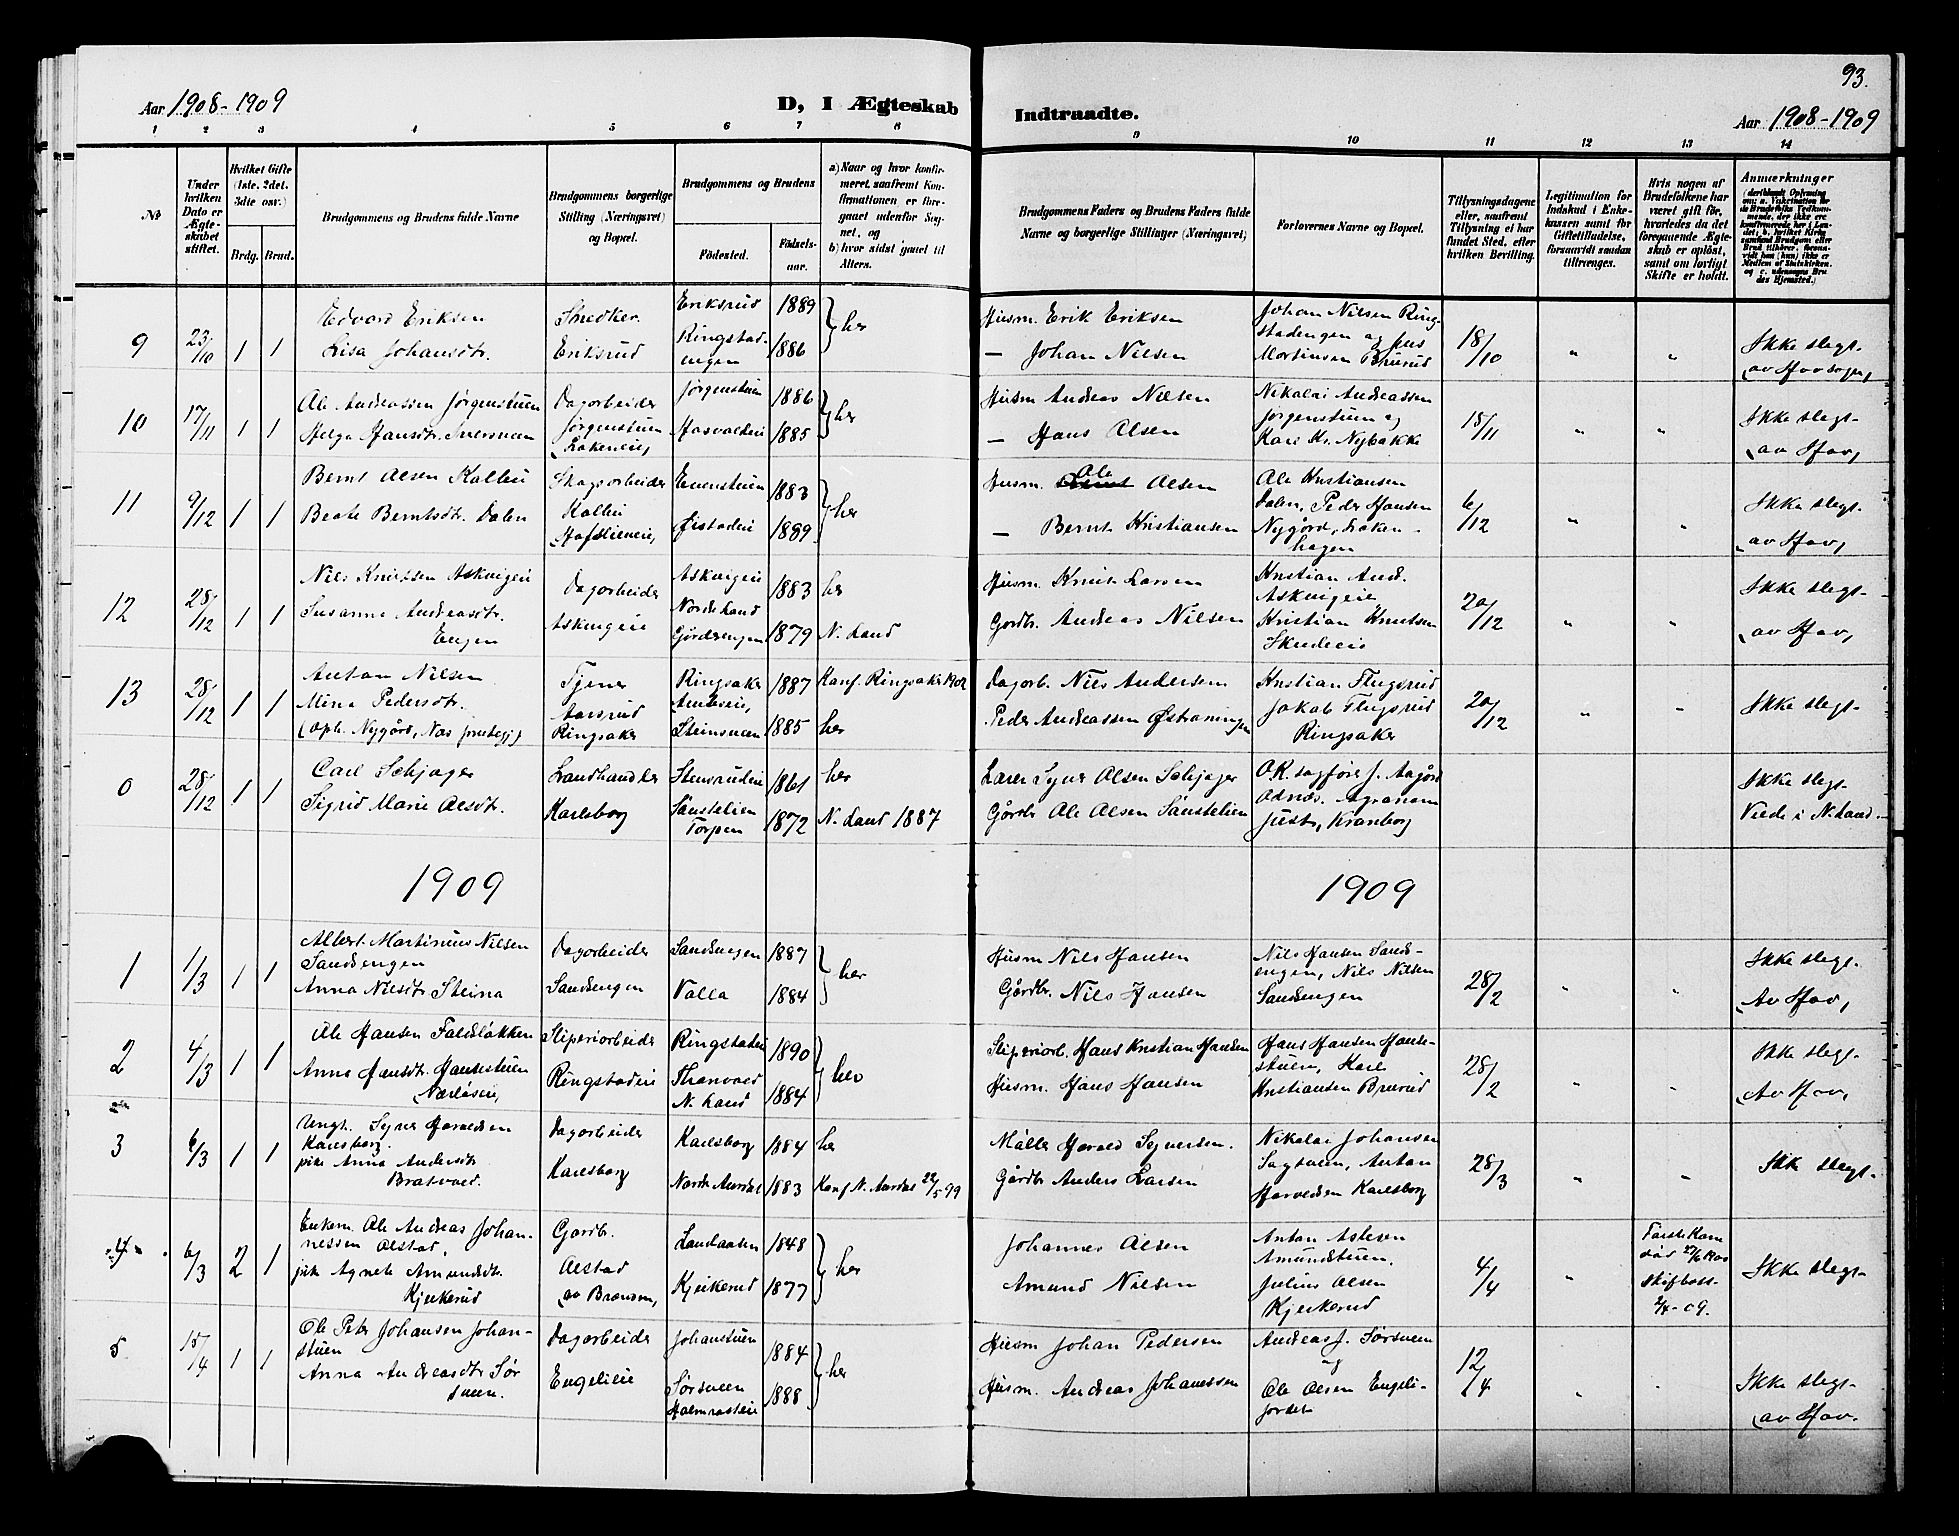 93.
Aar 1908-1909
D, I Ægteskab
Indtraadte.
Aar 1908-1909
1 2 3 4 5 6 7 8 9 10 11 12 13 14
No
Under hvilken Dato er Ægteskabet stiftet.
Hvilket Gifte (1ste. 2det. 3dte osv.)
Brdg. Brud.
Brudgommens og Brudens fulde Navne
Brudgommens borgerlige Stilling (Næringsvei) og Bopæl.
Brudgommens og Brudens
Fødested.
Fødselsaar.
a) Naar og hvor konfirmeret, saafremt Konfirmationen er foregaaet udenfor Sognet, og
b) hvor sidst gaaet til Alters.
Brudgommens Faders og Brudens Faders fulde Navne og borgerlige Stillinger (Næringsvei)
Forlovernes Navne og Bopæl.
Tillysningsdagene eller, saafremt Tillysning ei har fundet Sted, efter hvilken Bevilling.
Legitimation for Indskud i Enkekassen samt for Giftetilladelse, forsaavidt saadan tiltrænges.
Hvis nogen af Brudefolkene har været gift før, hvorledes da det foregaaende Ægteskab er opløst, samt om lovligt Skifte er holdt.
Anmerkninger
9 23/10 1 1
Edvard Eriksen
Lisa Johansdtr.
Snedker
Eriksrud
Eriksrud 1889
Ringstadengen 1886
her
Husm. Erik Eriksen
— Johan Nilsen
Johan Nilsen Ringstadengen og Jens
Mortinsen Brurud
18/10
Ikke slegt.
(av Hov sogn)
10 17/11 1 1
Ole Andreassen Jørgenstuen
Helga Hansdtr.
Dagarbeider
Jørgenstuen
Jørgenstuen 1886
1885
her
Husm Andreas Nilsen
— Hans Olsen
Nikolai Andreassen
Jørgenstuen og
Karl Kr. Nybakke
15/11
Ikke slegt-
(av Hov)
11 9/12 1 1
Bernt Olsen Kollei
Beate Berntsdtr. Dalen
Skogsarbeider
Kollei
Evenstuen 1883
1889
her
Husm. Ole Olsen
— Bernt Kristiansen
Ole Kristiansen
Dalen, Peder Hansen
Nygård,
hagen
6/12
Ikke slegt-
(av Hov)
12 28/12 1 1
Nils Knutsen Askvigeie
Susanne Andreasdtr.
Engen
Dagarbeider
Askvigeie
Askvigeie 1883
Nordre Land
Gårdsengen 1879
her
N. Land
Husm. Knut Larsen
Gårdbr. Andreas Nilsen
Kristian Andr.
Askvigeie
Kristian Knutsen
20/12
Ikke slegt-
(av Hov)
13 28/12 1 1
Anton Nilsen
Mina Pedersdtr.
(oph. Nygård, Næs prestegj)
Tjener
Aarsrud
Ringsaker
Ringsaker 1887
Steinsveen 1885
Konf. Ringsaker 1902
her
Dagarb. Nils Andersen
Peder Andreassen
Kristian Flugsrud
Jakob Flugsrud
Ringsaker
20/12
Ikke slegt-
0 28/12 1 1
Carl Schjager
Sigrid Marie Olsdtr.
Landhandler
Karlsborg
Stensrudeie 1861
Sønstelien
Torpen 1872
her
N. Land 1887
Lærer Syver Olsen Schjager
Gårdbr Ole Olsen Sønstelien
O.R. sagfører J. Aagård
Odnæs. Agronom
Just, Kronborg
Ikke slegt-
Viede i N. Land.
1909
1909
1 1/3 1 1
Albert Martinius Nilsen
Sandsengen
Anna Nilsdtr Steina
Dagarbeider
Sandsengen
Sandsengen 1887
Valla 1884
her
Husm Nils Hansen
Gårdbr. Nils Hansen
Nils Hansen Sandsengen, Nils Nilsen
Sandsengen
28/2
Ikke slegt.
(Av Hov)
2 4/3 1 1
Ole Hansen Faldsløkken
Anna Hansdtr. Hansestuen
Sliperiarbeider
Ringstadeie
Ringstadeie 1890
N. Land 1884
her
Sliperiarb. Hans Kristian Hansen
Husm. Hans Hansen
Hans Hansen Hansestuen, Karl
Kristiansen Brurud
28/2
Ikke slegt-
(Av Hov)
3 6/3 1 1
Ungk. Syver Harvedsen
Karlsborg.
pike Anna Andersdtr
Bratvold.
Dagarbeider
Karlsborg
Karlsborg 1884
Nordre Aurdal 1883
her
Konf N. Aurdal 22/5 99
Møller Harald Syversen.
Gårdbr Anders Larsen
Nikolai Johansen
Sagsveen, Anton
Harvedsen Karlsborg
28/3
Ikke slegt-
4 6/3 2 1
Enkem. Ole Andreas Johannessen Alstad,
pike Agnete Amundsdtr.
Kjeikerud
Gårdbr.
Alstad
Landaasen 1848
Kjeikerud 1877
her
Johannes Olsen
Amund Nilsen
Anton
Amundstuen.
Julius Olsen
Kjeikerud
4/4
Første Kone
skiftatt-
2/4-09.
Ikke slegt-
5 15/4 1 1
Ole Peter Johansen Johanstuen
Anna Andreasdtr Sørsveen.
Dagarbeider
Engelieie
Johanstuen 1884
Sørsveen 1888
her
Husm Johan Pedersen
Husm. Andreas Johanssen
Andreas J. Sørsveen
og
Ole Olsen Engelijordet
12/4
Ikke slegt-
(av Hov.